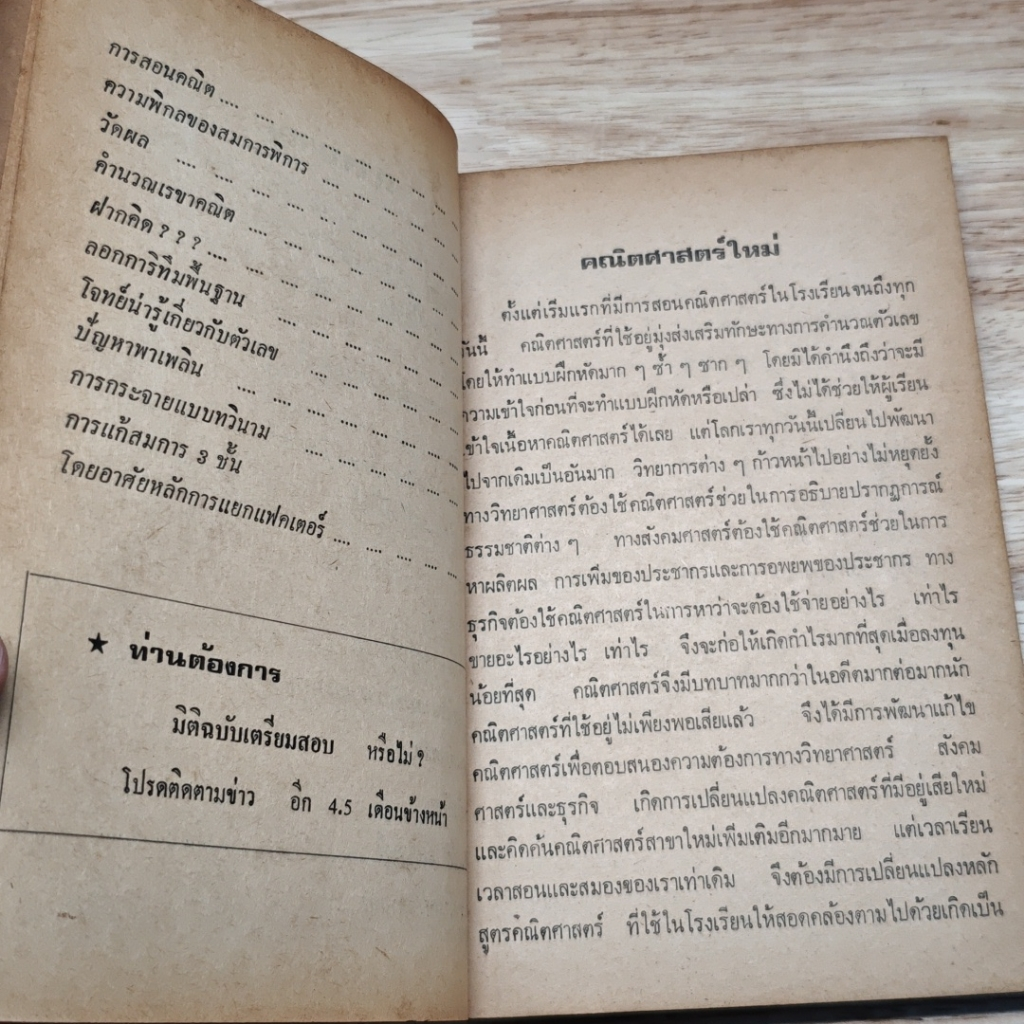 การสอนคณิต .... .... .... .... .... .... ....
ความพิกลของสมการพิการ .... .... .... ....
วัดผล .... .... .... .... .... .... ....
คำนวณเรขาคณิต .... .... .... .... ....
ฝากคิด ? ? ? .... .... .... .... .... ....
ลอกการิทึมพื้นฐาน .... .... .... .... ....
โจทย์น่ารู้เกี่ยวกับตัวเลข .... .... .... ....
ปัญหาพาเพลิน .... .... .... .... .... ....
การกระจายแบบทวินาม .... .... .... ....
การแก้สมการ 3 ชั้น
โดยอาศัยหลักการแยกแฟคเตอร์ .... .... .... ....
★ ท่านต้องการ
มิติฉบับเตรียมสอบ หรือไม่ ?
โปรดติดตามข่าว อีก 4.5 เดือนข้างหน้า
คณิตศาสตร์ใหม่
ตั้งแต่เริ่มแรกที่มีการสอนคณิตศาสตร์ในโรงเรียนจนถึงทุก
วันนี้ คณิตศาสตร์ที่ใช้อยู่มุ่งส่งเสริมทักษะทางการคำนวณตัวเลข
โดยให้ทำแบบฝึกหัดมาก ๆ ซ้ำ ๆ ซาก ๆ โดยมิได้คำนึงถึงว่าจะมี
ความเข้าใจก่อนที่จะทำแบบฝึกหัดหรือเปล่า ซึ่งไม่ได้ช่วยให้ผู้เรียน
เข้าใจเนื้อหาคณิตศาสตร์ได้เลย แต่โลกเราทุกวันนี้เปลี่ยนไปพัฒนา
ไปจากเดิมเป็นอันมาก วิทยาการต่าง ๆ ก้าวหน้าไปอย่างไม่หยุดยั้ง
ทางวิทยาศาสตร์ต้องใช้คณิตศาสตร์ช่วยในการอธิบายปรากฏการณ์
ธรรมชาติต่าง ๆ ทางสังคมศาสตร์ต้องใช้คณิตศาสตร์ช่วยในการ
หาผลิตผล การเพิ่มของประชากรและการอพยพของประชากร ทาง
ธุรกิจต้องใช้คณิตศาสตร์ในการหาว่าจะต้องใช้จ่ายอย่างไร เท่าไร
ขายอะไรอย่างไร เท่าไร จึงจะก่อให้เกิดกำไรมากที่สุดเมื่อลงทุน
น้อยที่สุด คณิตศาสตร์จึงมีบทบาทมากกว่าในอดีตมากต่อมากนัก
คณิตศาสตร์ที่ใช้อยู่ไม่เพียงพอเสียแล้ว จึงได้มีการพัฒนาแก้ไข
คณิตศาสตร์เพื่อตอบสนองความต้องการทางวิทยาศาสตร์ สังคม
ศาสตร์และธุรกิจ เกิดการเปลี่ยนแปลงคณิตศาสตร์ที่มีอยู่เสียใหม่
และคิดค้นคณิตศาสตร์สาขาใหม่เพิ่มเติมอีกมากมาย แต่เวลาเรียน
เวลาสอนและสมองของเราเท่าเดิม จึงต้องมีการเปลี่ยนแปลงหลัก
สูตรคณิตศาสตร์ ที่ใช้ในโรงเรียนให้สอดคล้องตามไปด้วยเกิดเป็น